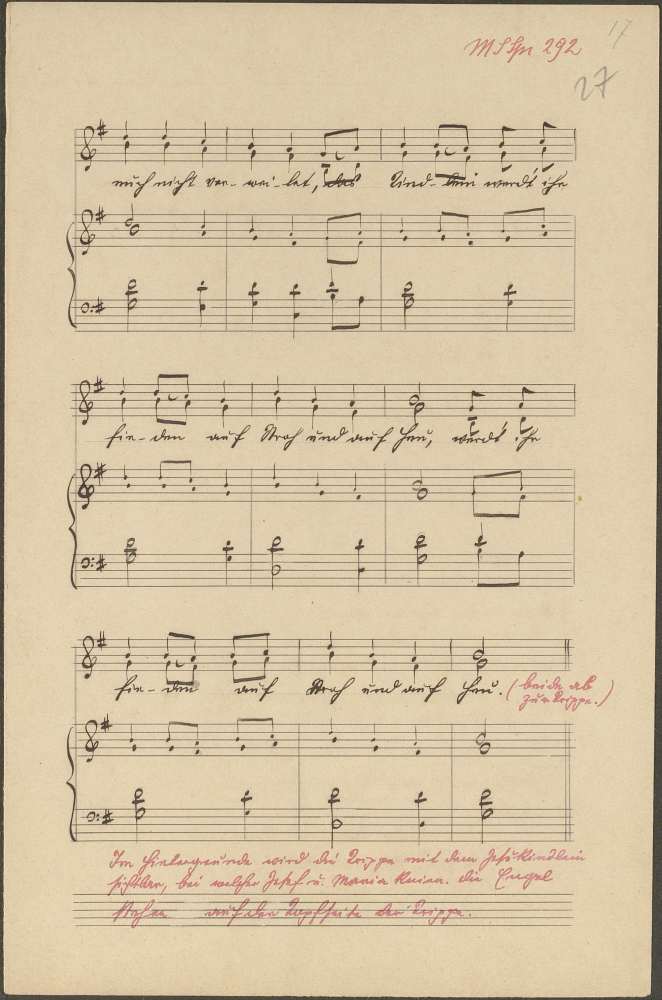 17
MSSpr 292
27
euch nicht ver-wei-let, das Kind-lein werdt ihr
fin-den auf Stroh und auf Heu, werdt ihr
fin-den auf Stroh und auf Heu. (beide ab
zur Krippe.)
Im Hintergrunde wird die Krippe mit dem Jesukindlein
sichtbar, bei welcher Josef u. Maria knien. Die Engel
stehen auf der Kopfseite der Krippe.